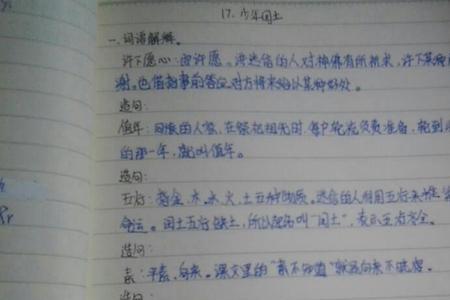 17. 少年闰土
一.词语解释.
许下愿心：即许愿。迷信的人对神佛有所祈求，许下某种
谢。也借指事前答应对方将来给以某种好处。
造句：
值年：同族的人家，在祭祀祖先时，每户轮流负责准备，轮到
的那一年，就叫值年。
造句：
五行：指金、木、水、火、土五种物质。迷信的人用五行来推
命运。闰土五行缺土，所以起名叫“闰土”，表示五行齐全。
造句：
素：平素，向来。课文里的“素不知道”就是向来不晓得。
造句：